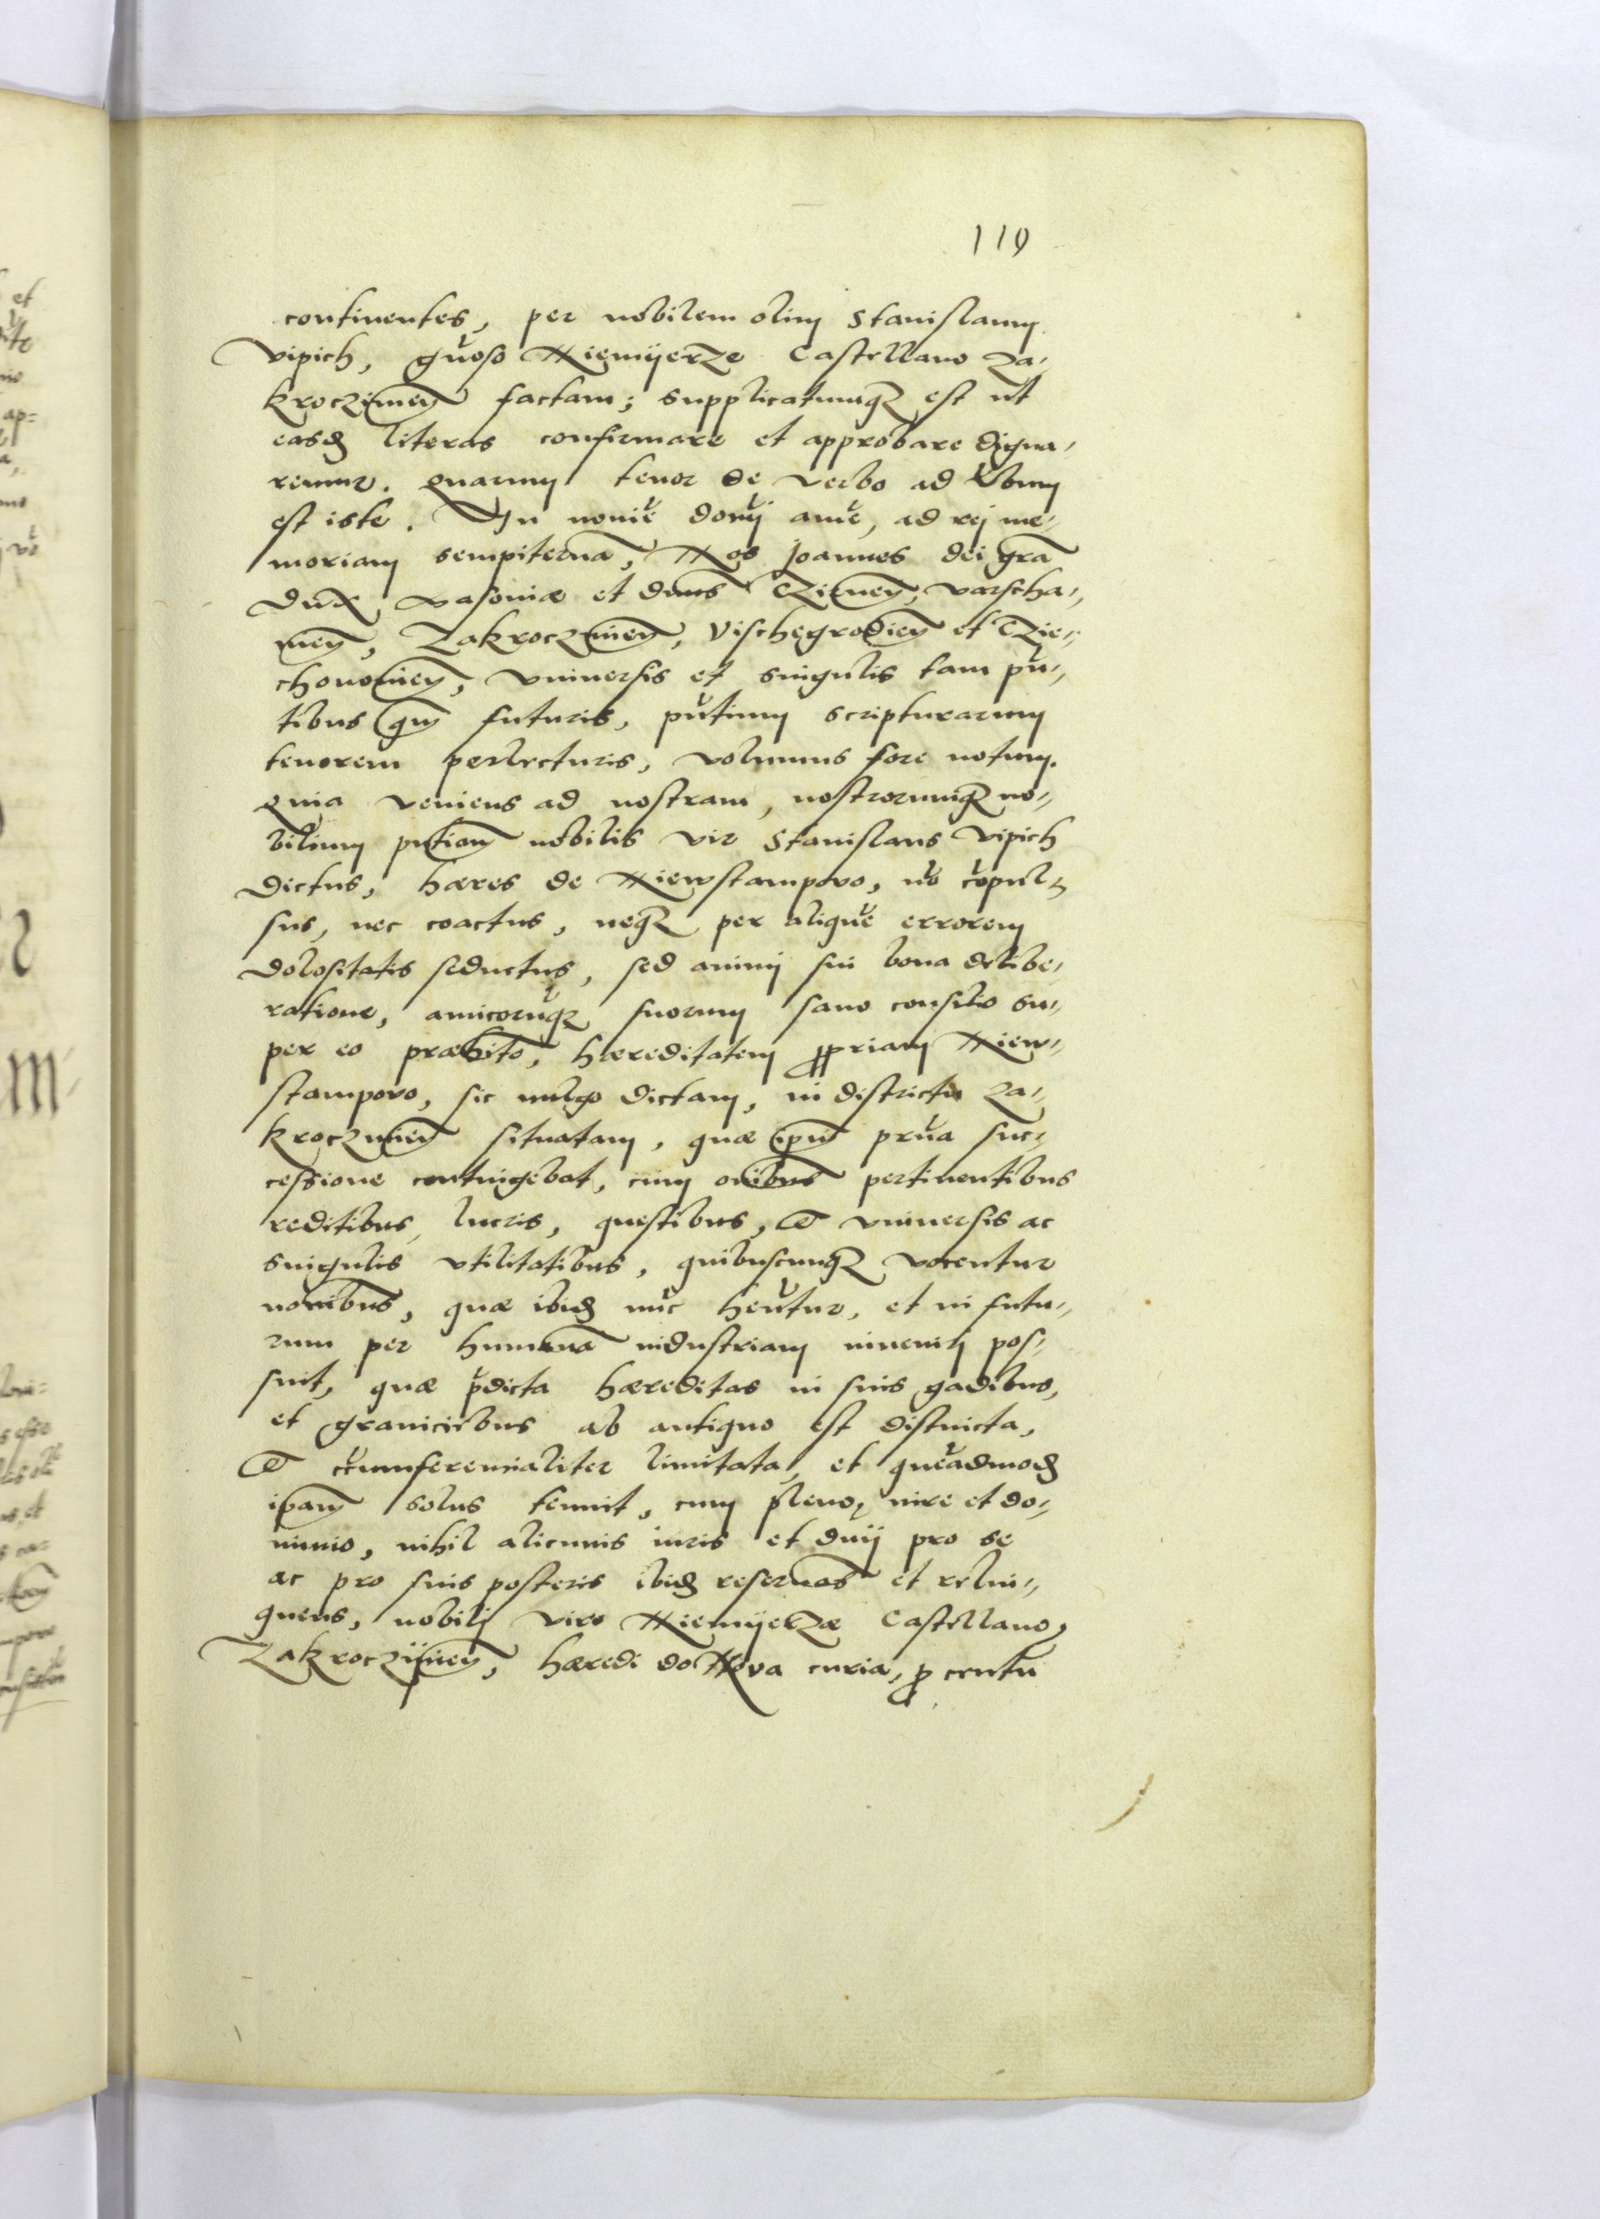 119
continentes, per nobilem olim Stanislaum
Vipich, gn̄oso Niemijerze Castellano Za-
kroczimen̄ factam; supplicatumq3 est ut
easd literas confirmare et approbare digna-
remur. quarum tenor de verbo ad Vbum
est iste. In nomīe domī amē, ad rej me-
moriam sempiternā, Nos Joannes dei gra̅
Dux Masoviæ et dnūs Czirnen̄, Varscha-
uien̄, Zakroczimien̄, Vischegrodien̄ et Czie-
chonouien̄, Vniuersis et singulis tam pn̄-
tibus qm̄ futuris, pn̄tium scripturarum
tenorem perlecturis, volumus fore notum.
quia veniens ad nostram, nostrorumq3 no-
bilium pn̄tiam̄ nobilis vir Stanislaus Vipich
dictus, hæres de Niewstampovo, nō cōpul-
sus, nec coactus, neq3 per aliquē errorem
dolositatis seductus, sed animi sui bona delibe-
ratione, amicorūq3 suorum sano consilio su-
per eo præhito, hæreditatem propriam Niew-
stampovo, sic vulgo dictam, in districtu Za-
kroczimien̄ situatam, quæ ipm̄ pr̄na suc-
cessione contingebat, cum om̄ibus pertinentibus
reditibus, lucris, questibus, et vniuersis ac
singulis vtilitatibus, quibuscunq3 vocentur
nom̄ibus, quæ ibid nūc hēntur, et in futu-
rum per humanā industriam inuenirj pos-
sūt, quæ p̄dicta hæreditas in suis gadibus,
et granicijbus ab antiquo est distincta,
et circumferencialiter limitata, et quēadmod
ipam̄ solus tenuit, cum pleno iure et do-
minio, nihil alicuius iuris et dn̄ij pro se
ac pro suis posteris ibid reseruās et relin-
quens, nobilj viro Niemijerzæ Castellano
Zakroczijmien̄, hæredi de Nova curia, pro centū